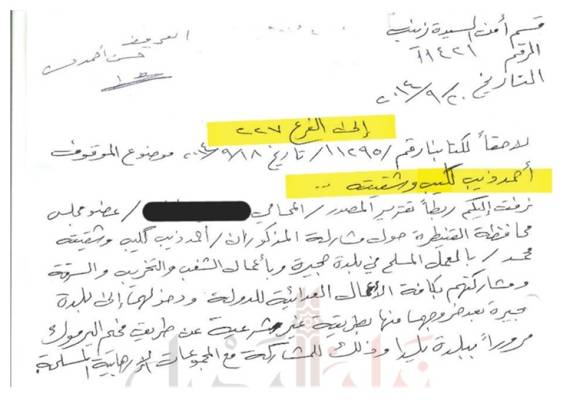 قسم أمن السيدة زينب
الرقم ١١٤٢١
التاريخ ٢٠١٤/٩/٢٠
إلى الفرع ٢٢٧
لاحقاً لكتابنا رقم /١١٢٩٥/ تاريخ ٢٠١٤/٩/١٨ موضوع الموقوف
أحمد ذيب كليب وشقيقه ..
نرفق إليكم ربطاً تقرير المصدر / المحامي / عضو مجلس
محافظة القنيطرة حول مشاركة المذكوران / أحمد ذيب كليب وشقيقه
محمد / بالعمل المسلح في بلدة حجيرة وبأعمال الشغب والتخريب والسرقة
ومشاركتهم بكافة الأعمال العدائية للدولة ودخولهما إلى بلدة
حجيرة بعد خروجهما منها بطريقة غير شرعية عن طريق مخيم اليرموك
مروراً ببلدة يلدا وذلك للمشاركة مع المجموعات الإرهابية المسلحة